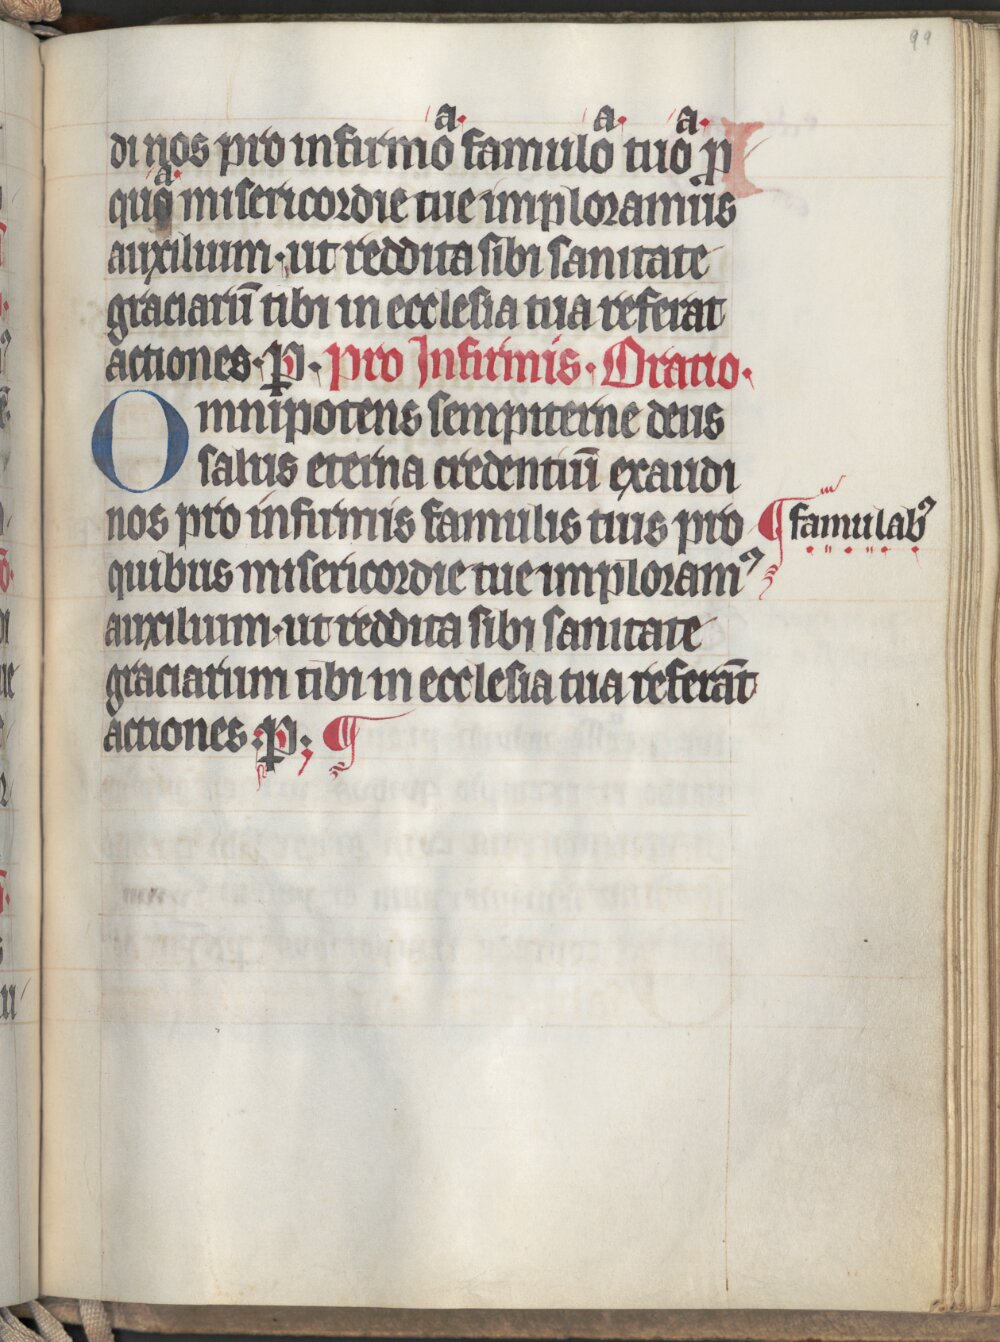 99
a. a. a.
di nos pro infirmo famulo tuo p
a.
quo misericordie tue imploramus
auxilium·ut reddita sibi sanitate
graciarū tibi in ecclesia tua referat
actiones·P·pro Infirmis·Oratio·
Omnipotens sempiterne deus
salus eterna credentiū exaudi
nos pro infirmis famulis tuis pro ¶ famulabꝰ
quibus misericordie tue imploramꝰ
auxilium·ut reddita sibi sanitate
graciarum tibi in ecclesia tua referāt
actiones·P; ¶